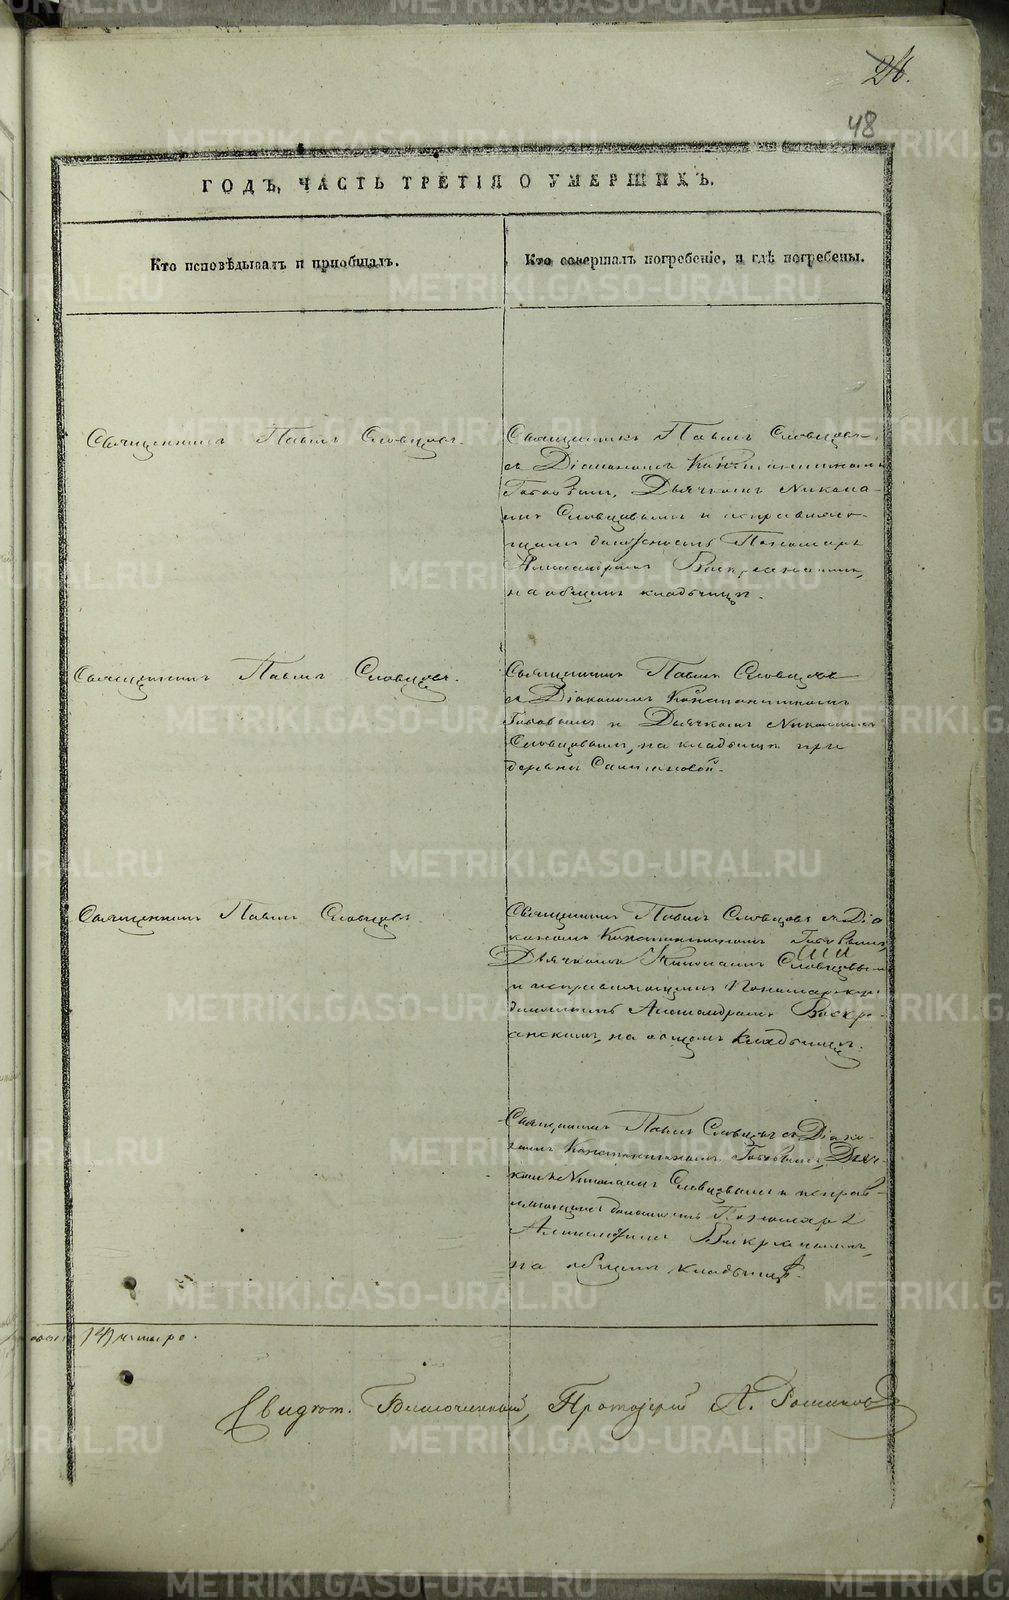 26.
48
ГОДЪ, ЧАСТЬ ТРЕТІЯ О УМЕРШИХЪ.
Кто исповѣдывалъ и пріобщалъ.
Кто совершалъ погребеніе, и гдѣ погребены.
Священникъ Павелъ Словцовъ.
Священникъ Павелъ Словцовъ
съ Діакономъ Константиномъ
Дьячкомъ Никола-
емъ Словцовымъ и исправляю-
щимъ должность Пономаря
Александромъ Воскресенскимъ,
на общемъ кладбищѣ.
Священникъ Павелъ Словцовъ.
Священникъ Павелъ Словцовъ
съ Діакономъ Константиномъ
и Дьячкомъ Николаемъ
Словцовымъ, на кладбищѣ при
деревнѣ
Священникъ Павелъ Словцовъ
Священникъ Павелъ Словцовъ съ Діа
кономъ Константиномъ
Дьячкомъ Николаемъ Словцовымъ
и исправляющимъ Пономарскую
должность Александромъ Воскре-
сенскимъ, на общемъ кладбищѣ.
Священникъ Павелъ Словцовъ съ Діако-
номъ Константиномъ Дьяч-
комъ Николаемъ Словцовымъ и исправ-
ляющимъ должность Пономаря
Александромъ Воскресенскимъ,
на общемъ кладбищѣ.
четыре.
Благочинный, Протоіерей А.
METRIKI.GASO-URAL.RU